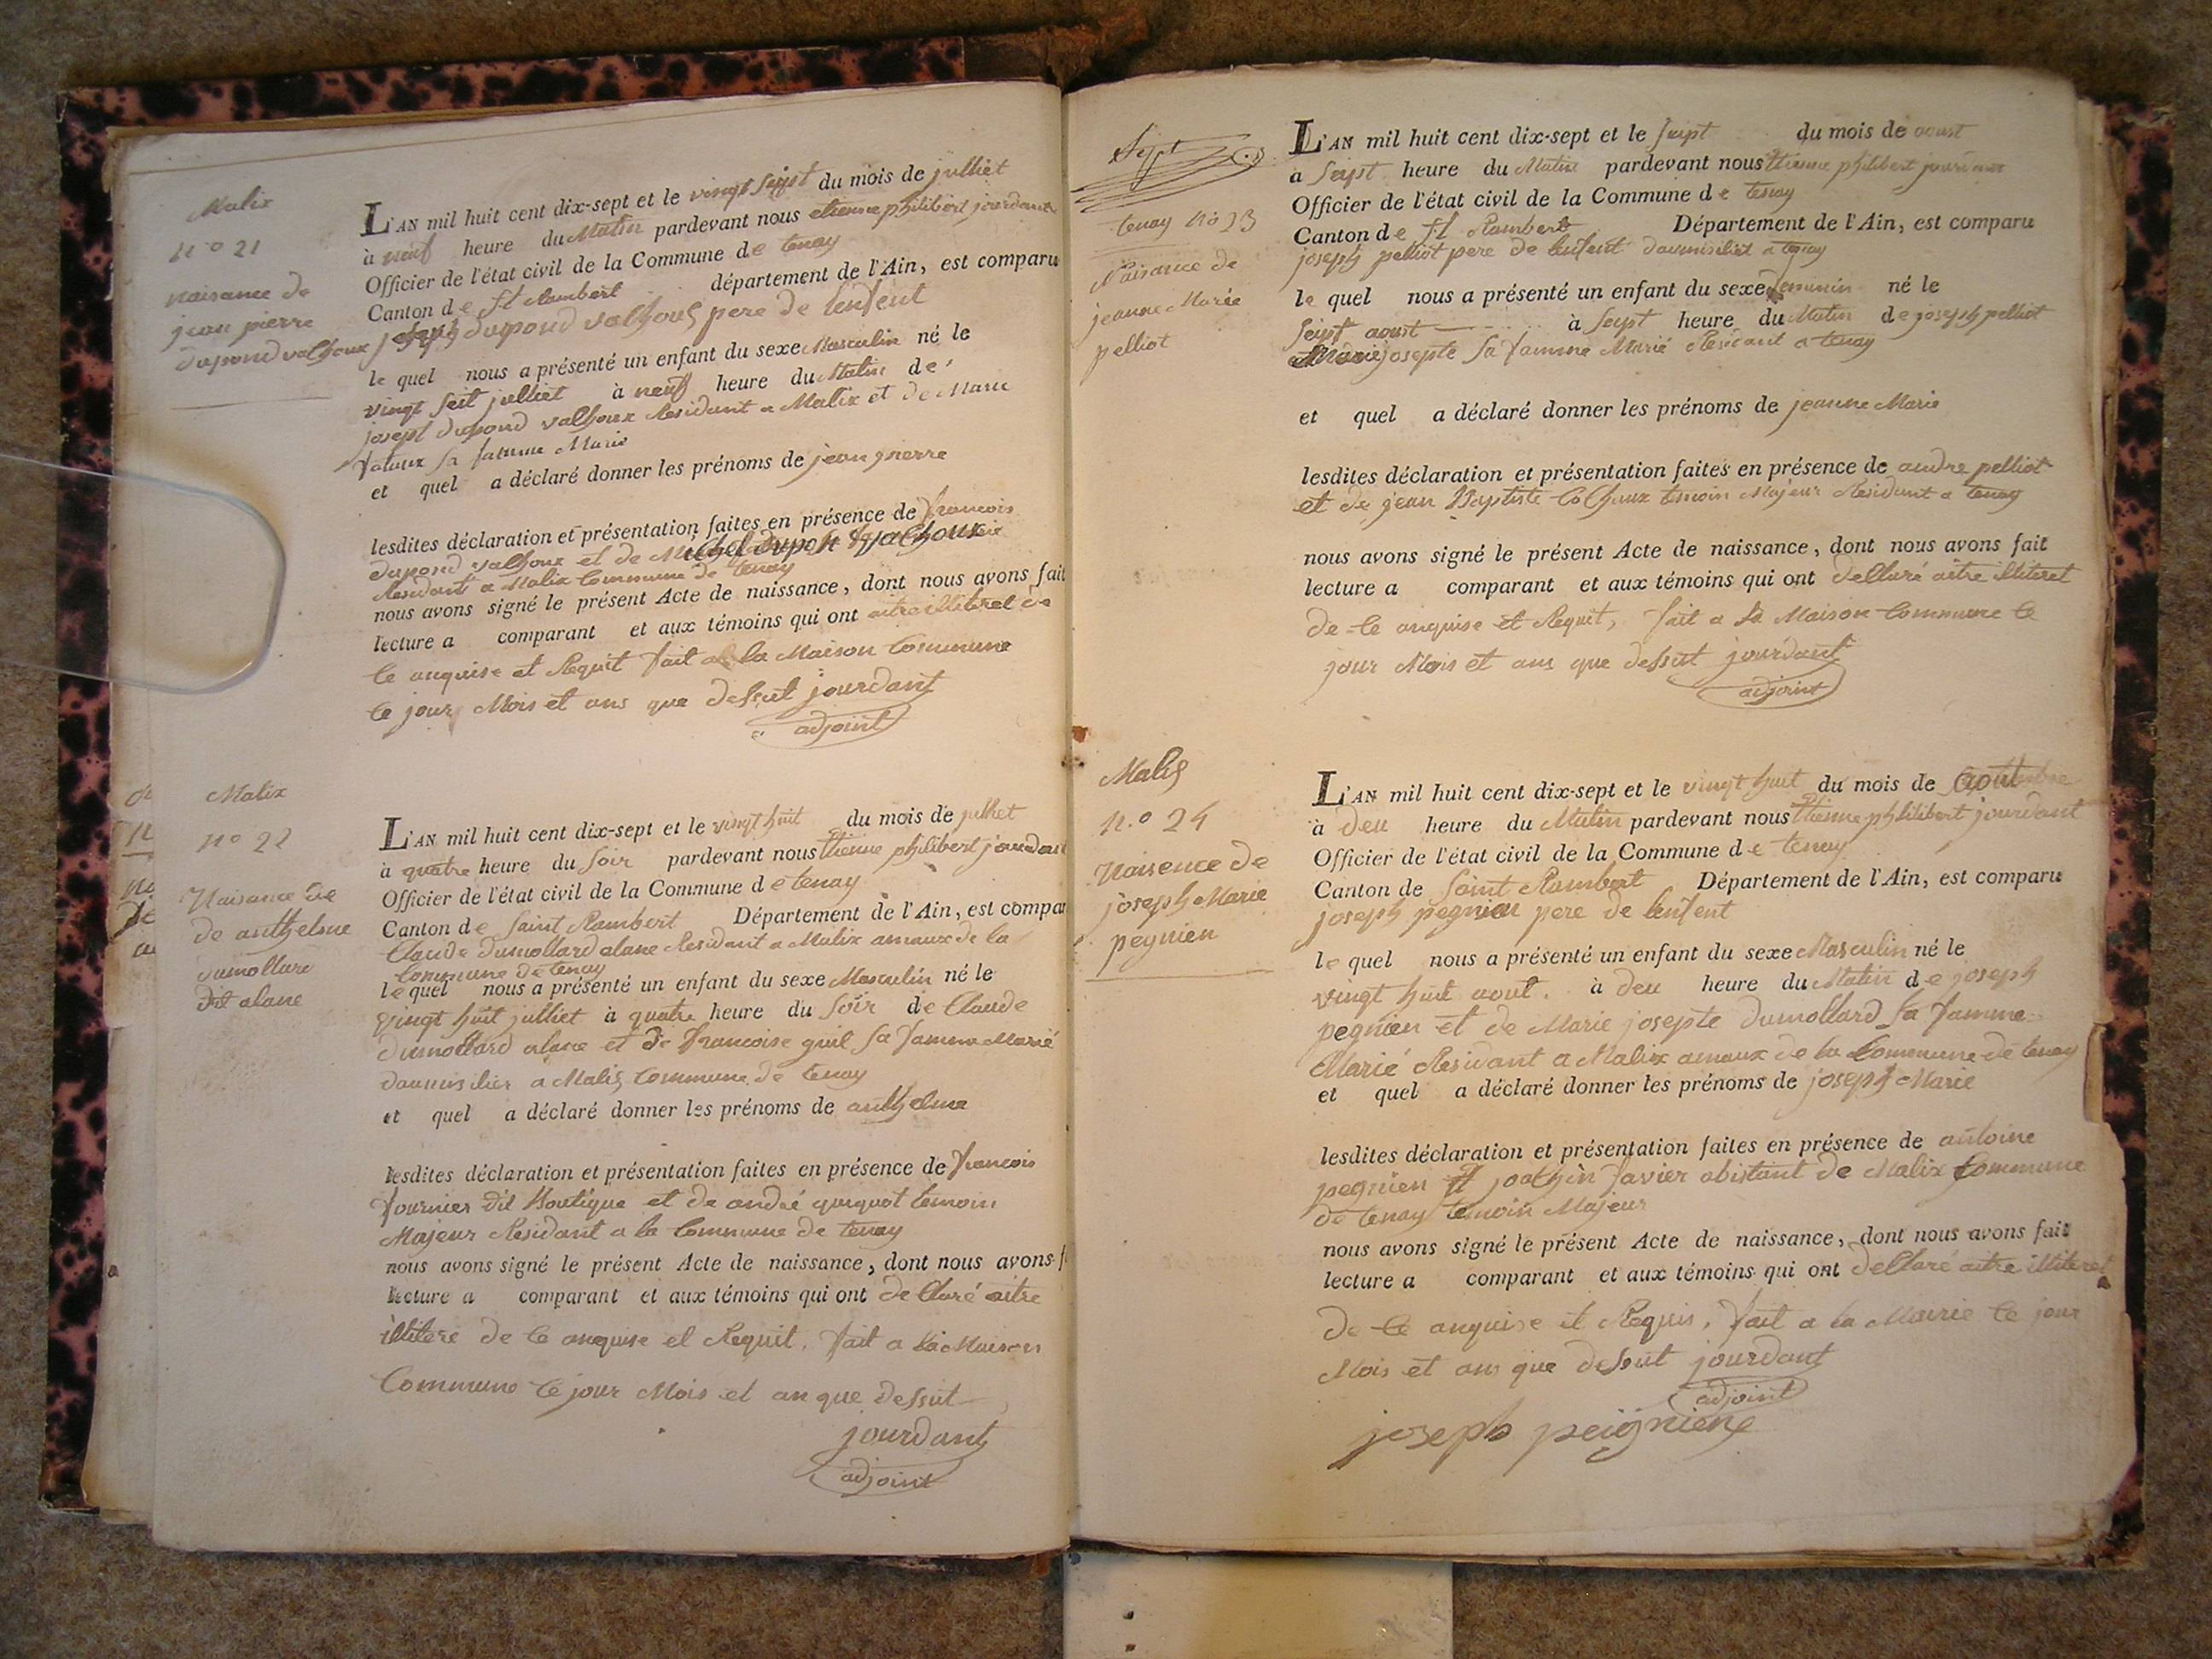 Malix
n.o 21
naisance de
jean pierre
dupond valhoux
L'AN mil huit cent dix-sept et le vingt seipt du mois de julliet
à neuf heure du Matin pardevant nous etienne philibert jourdant
Officier de l'état civil de la Commune de tenay
Canton de St Rambert département de l'Ain, est comparu
joseph dupond valhoux pere de lenfent
le quel nous a présenté un enfant du sexe Masculin né le
vingt seit julliet à neuf heure du Matin de
josept dupond valhoux Residant a Malix et de Marie
sa famme Marié
et quel a déclaré donner les prénoms de jean pierre
lesdites déclaration et présentation faites en présence de francois
dupond valhoux et de Michel dupont valhoux
Residant a Malix Commune de tenay
nous avons signé le présent Acte de naissance, dont nous avons fait
lecture a comparant et aux témoins qui ont aitre illiteret de
ce anquise et Requit fait a la Maison Commune
le jour Mois et ans que dessut jourdant
adjoint
Malix
no 22
Naisance de
de anthelme
dumollard
dit alane
L'AN mil huit cent dix-sept et le vingt huit du mois de julliet
à quatre heure du soir pardevant nous Etienne philibert jourdant
Officier de l'état civil de la Commune de tenay
Canton de Saint Rambert Département de l'Ain, est compar
Claude dumollard alane Residant a Malix amaux de la
Commune de tenay
le quel nous a présenté un enfant du sexe Masculin né le
vingt huit julliet à quatre heure du soir de Claude
dumollard alane et de francoise guil sa famme Marié
daumisilier a Malix Commune de tenay
et quel a déclaré donner les prénoms de anthelme
lesdites déclaration et présentation faites en présence de francois
fournier dit Boutique et de andré quiquot temoin
Majeur Residant a la Commune de tenay
nous avons signé le présent Acte de naissance, dont nous avons f
lecture a comparant et aux témoins qui ont de Claré aitre
illitere de ce anquise et Requit. fait a la Maison
Commune le jour Mois et an que dessut
jourdant
adjoint
Sept
tenay no 23
Naisance de
jeanne Marie
pelliot
L'AN mil huit cent dix-sept et le seipt du mois de aoust
à seipt heure du Matin pardevant nous Etienne philibert jourdant
Officier de l'état civil de la Commune de tenay
Canton de St Rambert Département de l'Ain, est comparu
joseph pelliot pere de lenfent daumisiliet a tenay
le quel nous a présenté un enfant du sexe femmin né le
seipt aoust à seipt heure du Matin de joseph pelliot
et Marie josepte sa famme Marié Residant a tenay
et quel a déclaré donner les prénoms de jeanne Marie
lesdites déclaration et présentation faites en présence de andre pelliot
et de jean Baptiste Colhaux temoin Majeur Residant a tenay
nous avons signé le présent Acte de naissance, dont nous avons fait
lecture a comparant et aux témoins qui ont dellaré aitre illiteret
de ce anquise et Requit, fait a la Maison Commune le
jour Mois et ans que dessut jourdant
adjoint
Malix
n.o 24
Naisence de
joseph Marie
pegnien
L'AN mil huit cent dix-sept et le vingt huit du mois de Aout
à deu heure du Matin pardevant nous Etienne philibert jourdant
Officier de l'état civil de la Commune de tenay
Canton de Saint Rambert Département de l'Ain, est comparu
joseph pegnien pere de lenfent
le quel nous a présenté un enfant du sexe Masculin né le
vingt huit aout. à deu heure du Matin de joseph
pegnien et de Marie josepte dumollard sa famme
Marié Residant a Malix amaux de la Commune de tenay
et quel a déclaré donner les prénoms de joseph Marie
lesdites déclaration et présentation faites en présence de antoine
pegnien et joachin favier abistant de Malix Commune
de tenay temoin Majeur
nous avons signé le présent Acte de naissance, dont nous avons fait
lecture a comparant et aux témoins qui ont dellaré aitre illiteret
de ce anquise et Requis, fait a la Mairie le jour
Mois et ans que dessut jourdant
adjoint
joseph peigniene